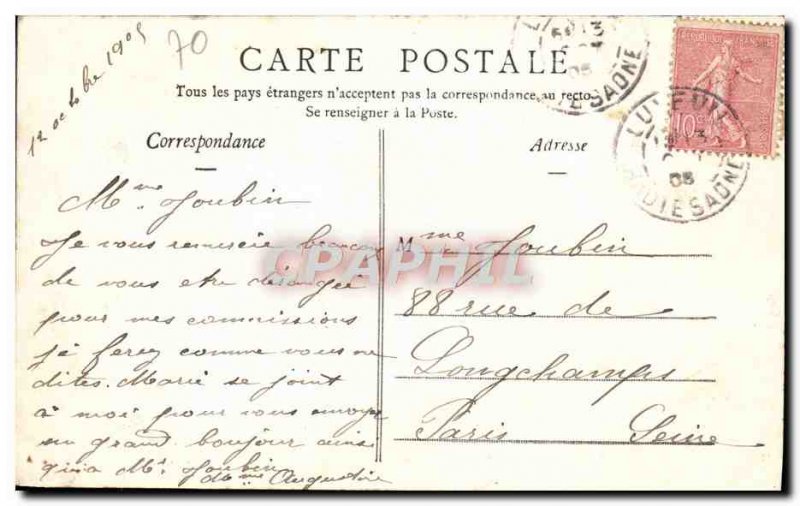 12 octobre 1905
70
CARTE POSTALE
Tous les pays étrangers n'acceptent pas la correspondance au recto
Se renseigner à la Poste.
Correspondance
Mme Joubin
Je vous remercie beaucoup
de vous etre dérangée
pour mes commissions
je ferez comme vous me
dites. Marie se joint
à moi pour vous envoyer
un grand bonjour ainsi
qu'a Mr Joubin
Mme Augustine
Adresse
Mme Joubin
88 rue de
Longchamps
Paris Seine
CPAPHIL
SAONE
05
10
LUXEUIL
05
HTE SAONE